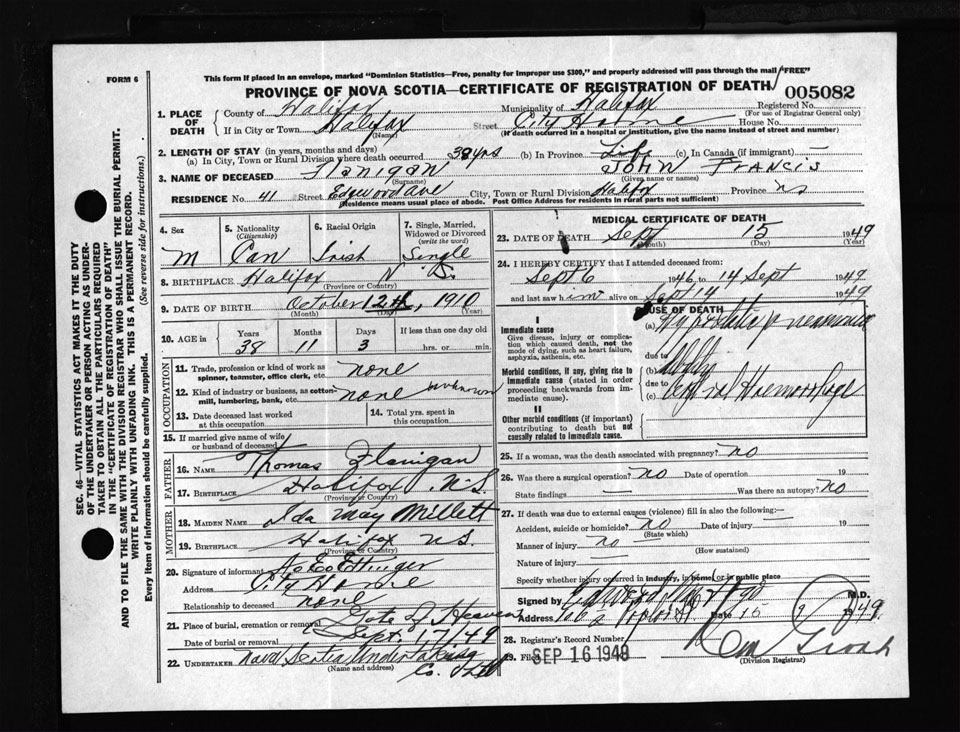 FORM 6
This form if placed in an envelope, marked "Dominion Statistics—Free, penalty for improper use $300," and properly addressed will pass through the mail "FREE"
PROVINCE OF NOVA SCOTIA—CERTIFICATE OF REGISTRATION OF DEATH
005082
1. PLACE OF DEATH
County of Halifax Municipality of Halifax Registered No.
(For use of Registrar General only)
If in City or Town Halifax Street City Home House No.
(Name) (If death occurred in a hospital or institution, give the name instead of street and number)
2. LENGTH OF STAY (in years, months and days)
(a) In City, Town or Rural Division where death occurred 38 yrs (b) In Province Life (c) In Canada (if immigrant) —
3. NAME OF DECEASED Flanigan JOHN FRANCIS
(Surname) (Given name or names)
RESIDENCE No. 41 Street Edgewood Ave City, Town or Rural Division Halifax Province NS
(Residence means usual place of abode. Post Office Address for residents in rural parts not sufficient)
4. Sex
M
5. Nationality (Citizenship)
Can
6. Racial Origin
Irish
7. Single, Married, Widowed or Divorced (write the word)
Single
8. BIRTHPLACE Halifax N S.
(Province or Country)
9. DATE OF BIRTH October 12th, 1910
(Month) (Day) (Year)
10. AGE in Years Months Days If less than one day old
38 11 3 hrs. or min.
OCCUPATION
11. Trade, profession or kind of work as spinner, teamster, office clerk, etc. none
12. Kind of industry or business, as cotton-mill, lumbering, bank, etc. none unknown
13. Date deceased last worked at this occupation
14. Total yrs. spent in this occupation
15. If married give name of wife or husband of deceased
FATHER
16. NAME Thomas Flanigan
17. BIRTHPLACE Halifax N.S.
(Province or Country)
MOTHER
18. MAIDEN NAME Ida May Millett
19. BIRTHPLACE Halifax N.S.
(Province or Country)
20. Signature of informant Ettinger
Address City Home
Relationship to deceased none
21. Place of burial, cremation or removal Gate of Heaven
Date of burial or removal Sept. 17/49
22. UNDERTAKER Nova Scotia Undertaking Co. Ltd
(Name and address)
MEDICAL CERTIFICATE OF DEATH
23. DATE OF DEATH Sept 15 1949
(Month) (Day) (Year)
24. I HEREBY CERTIFY that I attended deceased from:
Sept 6 1946 to 14 Sept 1949
and last saw him alive on Sept 14 1949
CAUSE OF DEATH
I
Immediate cause
Give disease, injury or complication which caused death, not the mode of dying, such as heart failure, asphyxia, asthenia, etc.
(a) Hypostatic pneumonia
due to
Morbid conditions, if any, giving rise to immediate cause (stated in order proceeding backwards from immediate cause).
(b)
due to
(c) Haemorrhage
II
Other morbid conditions (if important) contributing to death but not causally related to immediate cause.
25. If a woman, was the death associated with pregnancy? no
26. Was there a surgical operation? no Date of operation 19
State findings — Was there an autopsy? no
27. If death was due to external causes (violence) fill in also the following:—
Accident, suicide or homicide? no Date of injury — 19
(State which)
Manner of injury no
(How sustained)
Nature of injury
Specify whether injury occurred in industry, in home, or in public place
Signed by M.D.
Address Date 15 9 1949.
28. Registrar's Record Number
29. Filed SEP 16 1948
(Division Registrar)
SEC. 46—VITAL STATISTICS ACT MAKES IT THE DUTY
OF THE UNDERTAKER OR PERSON ACTING AS UNDER-
TAKER TO OBTAIN ALL THE PARTICULARS REQUIRED
IN THE "CERTIFICATE OF REGISTRATION OF DEATH"
AND TO FILE THE SAME WITH THE DIVISION REGISTRAR WHO SHALL ISSUE THE BURIAL PERMIT.
WRITE PLAINLY WITH UNFADING INK. THIS IS A PERMANENT RECORD.
Every item of information should be carefully supplied. (See reverse side for instructions.)